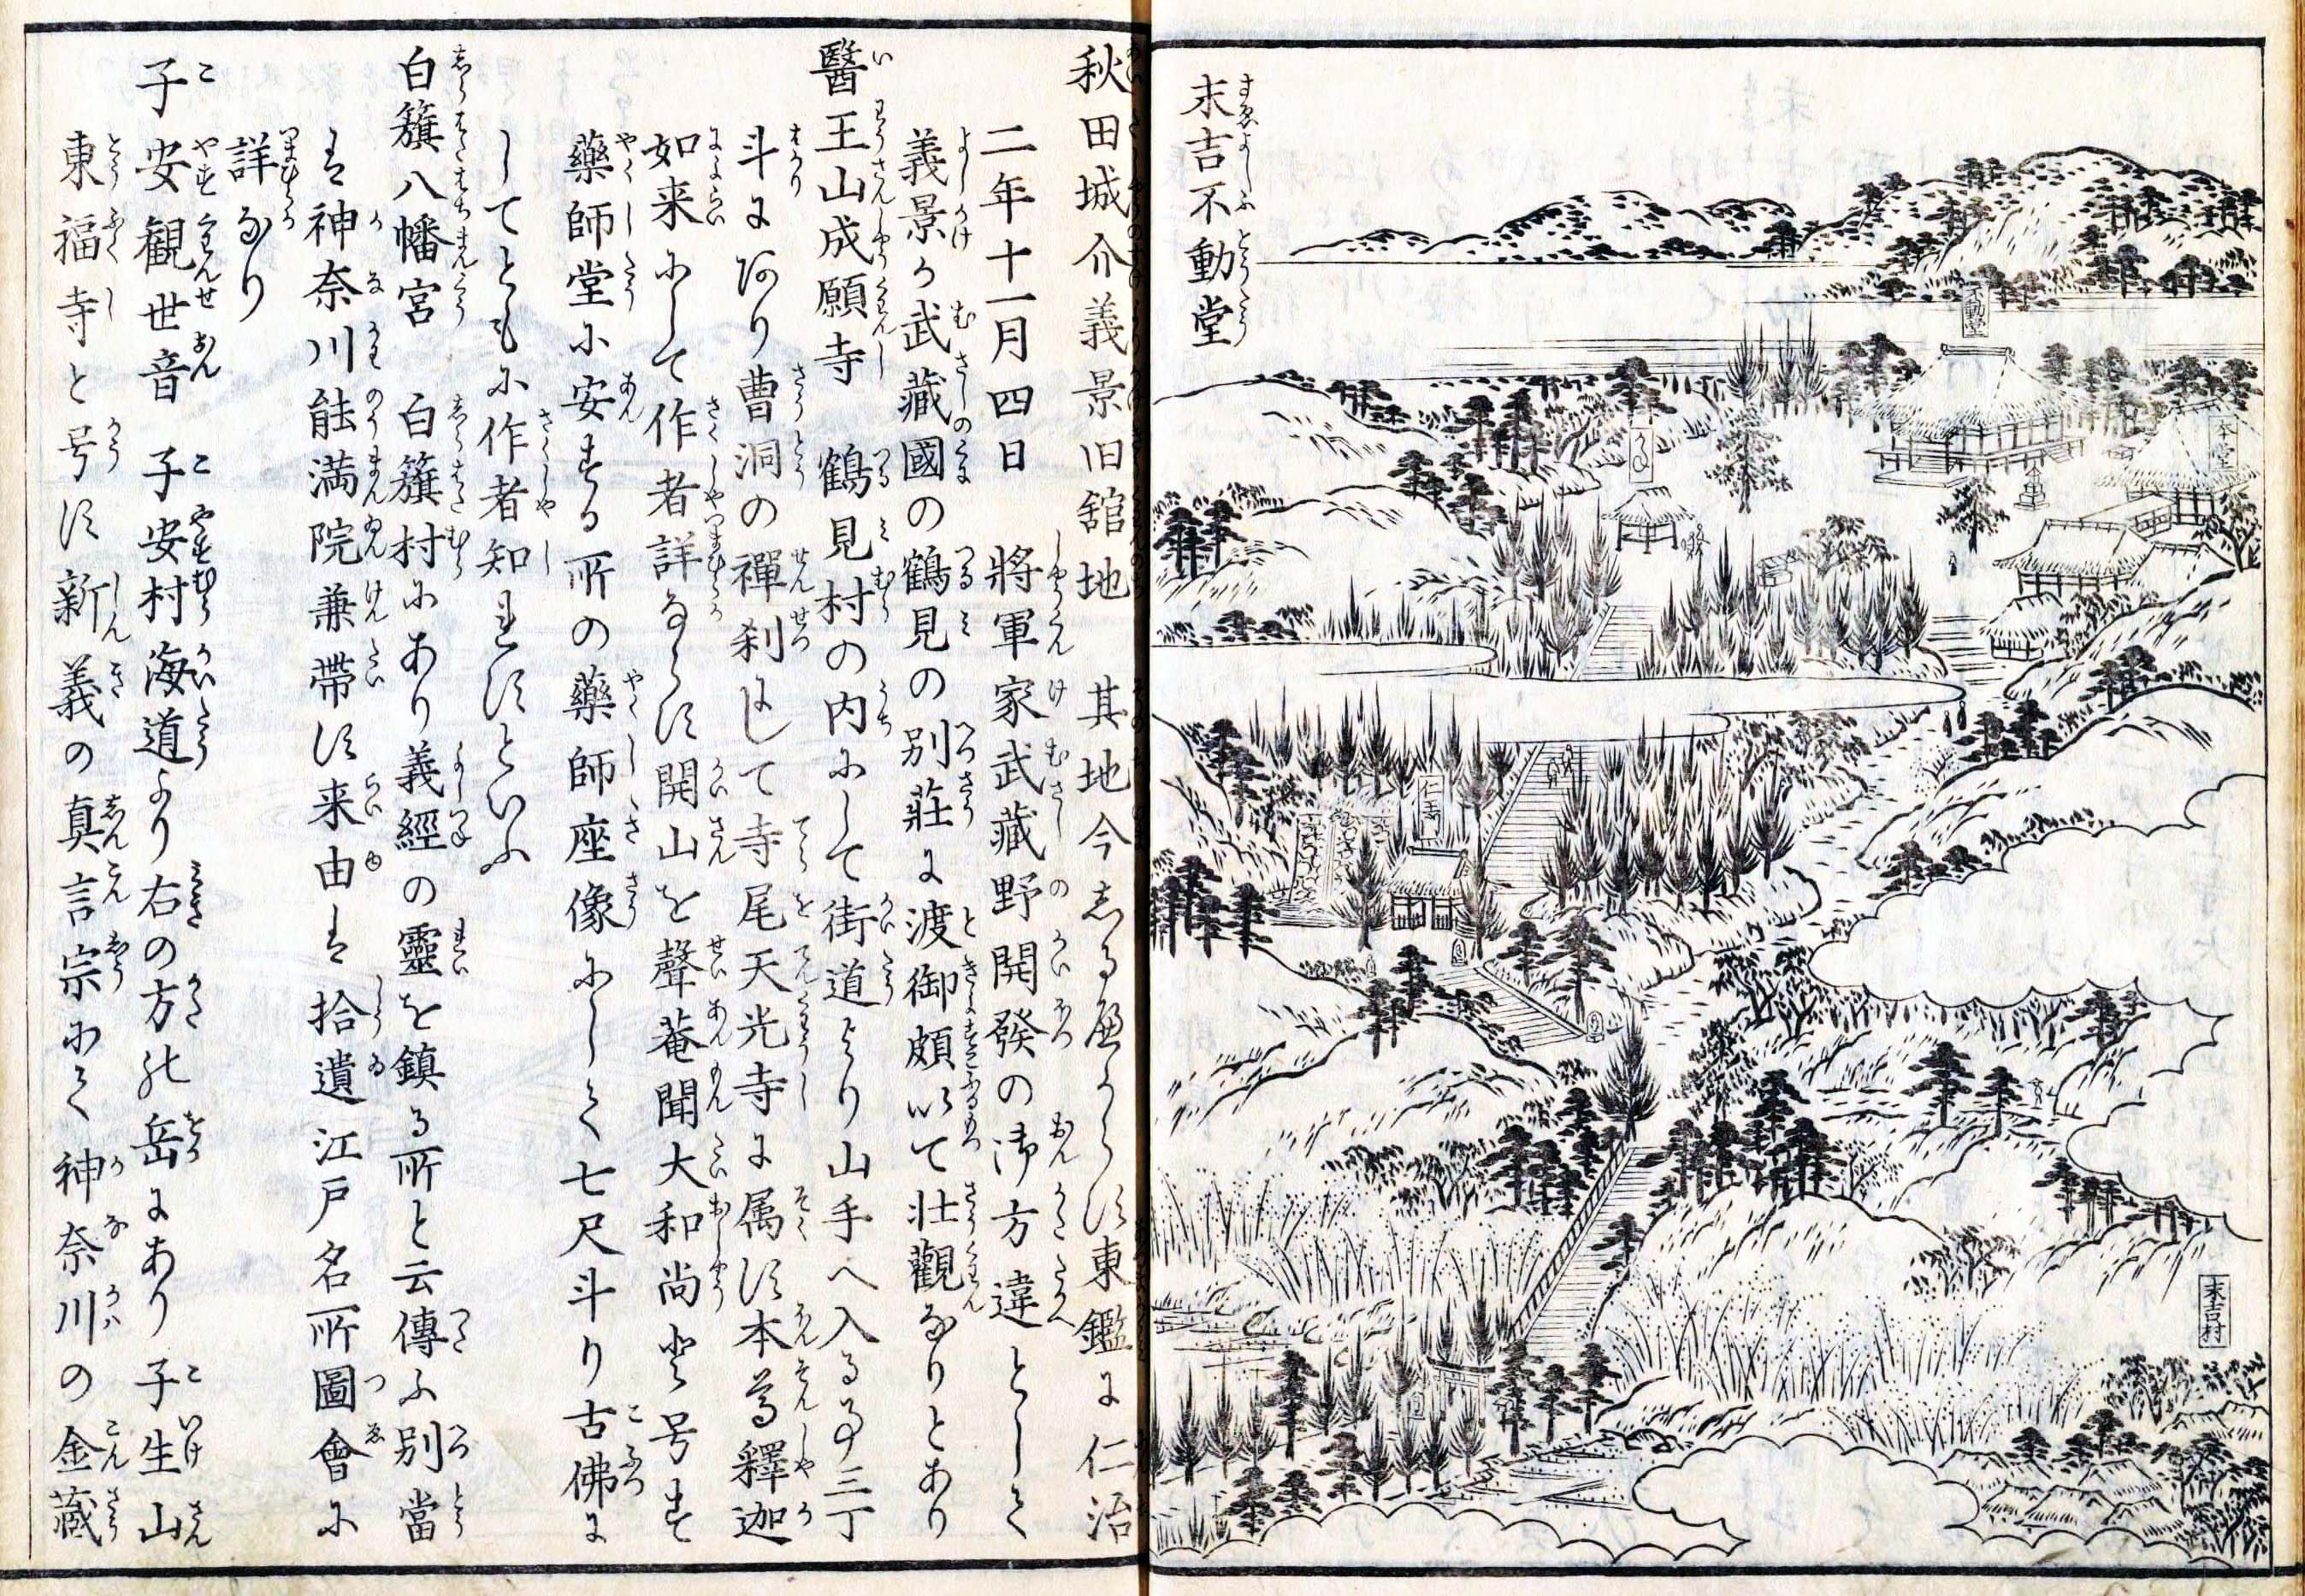 末吉不動堂
不動堂
本堂
かね
仁王門
末吉村
秋田城介義景旧舘地　其地今志る處からす東鑑に仁治
二年十一月四日　將軍家武藏野開發の御方違として
義景か武藏國の鶴見の別莊に渡御頗以て壮觀なりとあり
醫王山成願寺　鶴見村の内にして街道より山手へ入る事三丁
斗にあり曹洞の禪刹にして寺尾天光寺に属す本尊釋迦
如来にして作者詳ならす開山を聲菴聞大和尚と号す
藥師堂に安する所の藥師座像にして七尺斗り古佛に
してともに作者知れすといふ
白籏八幡宮　白籏村にあり義經の靈を鎮る所と云傳ふ別當
は神奈川能満院兼帯す来由は拾遺江戸名所圖會に
詳なり
子安観世音　子安村海道より右の方の岳にあり子生山
東福寺と号す新義の真言宗にて神奈川の金蔵